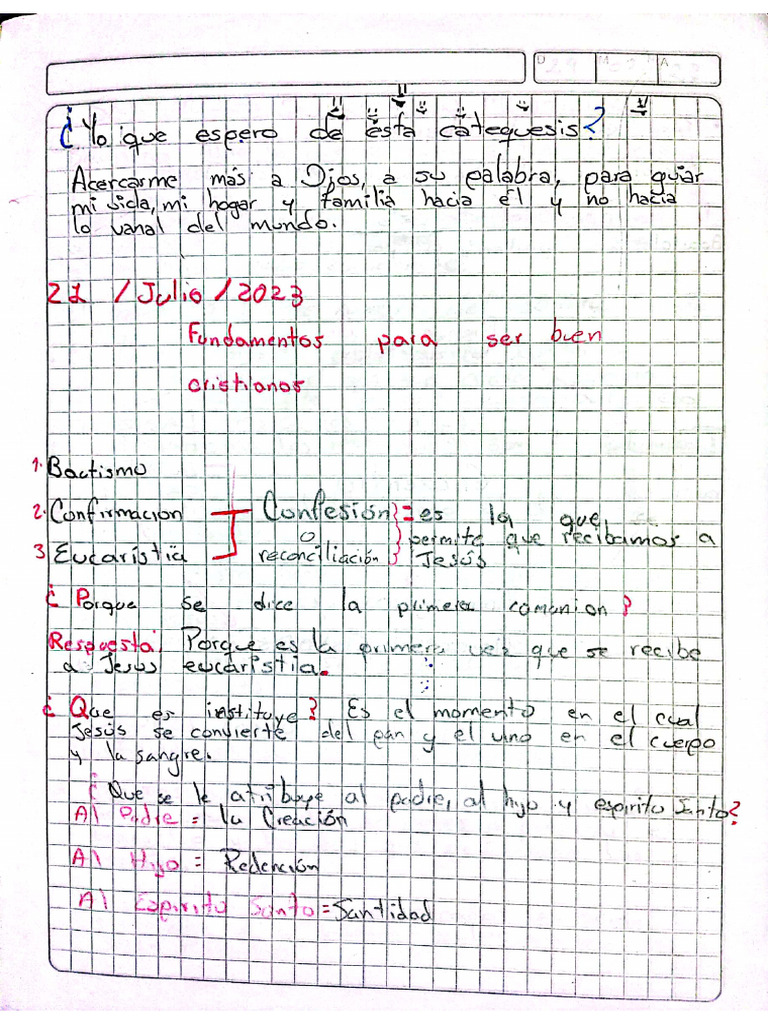 D M A
¿Yo que espero de esta catequesis?
Acercarme más a Dios, a su palabra, para guiar
mi vida, mi hogar y familia hacia él y no hacia
lo vanal del mundo.
21 /Julio/2023
Fundamentos para ser buen
cristianos
1. Bactismo
2. Confirmacion Confesión = es la que
o permite que recibamos a
3 Eucaristia reconciliación Jesús
¿Porque se dice la primera comunion?
Respuesta: Porque es la primera vez que se recibe
a Jesus eucaristia.
¿Que es instituye? Es el momento en el cual
Jesús se convierte del pan y el vino en el cuerpo
y la sangre.
¿Que se le atribuye al padre, al hijo y espirito Santo?
Al Padre = la Creación
Al Hijo = Redención
Al Espirito Santo = Santidad